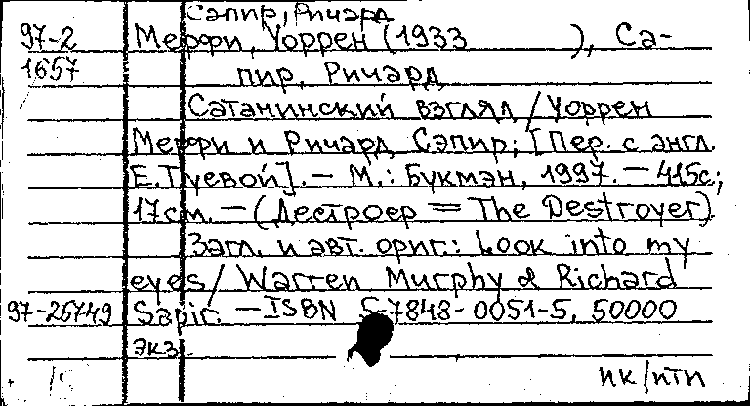 Сэпир, Ричард
97-2 Мерфи, Уоррен (1933 ), Сэ-
1657 пир, Ричард
Сатанинский взгляд / Уоррен
Мерфи и Ричард Сэпир; [Пер. с англ.
Е. Туевой]. — М.: Букмэн, 1997. — 415с.;
17см. — (Дестроер = The Destroyer)
Загл. и авт. ориг.: Look into my
eyes / Warren Murphy & Richard
97-26749 Sapir. — ISBN 5-7848-0051-5, 50000
экз.
пк/птп